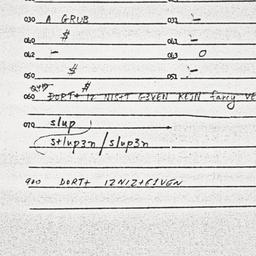 030 A GRUB 031 –
060 # 061 –
062 – 063 O
050 # 051 –
#
060 DORT+ IZ NIS+T GIVEN KEIN farry VE
070 slup
s+lup3n / slup3n
900 DORT+ IZNIZ+GIVEN